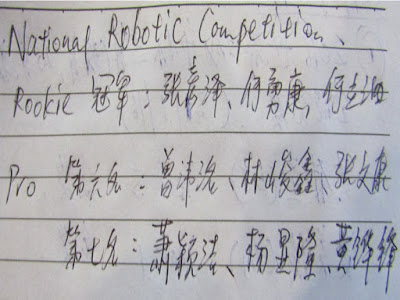 National Robotic Competition.
Rookie 冠军：张嘉泽、何勇康、何
Pro 第六名：曾沛、林峻鑫、张文康
第七名：萧颖洁、杨昱隆、黄锋